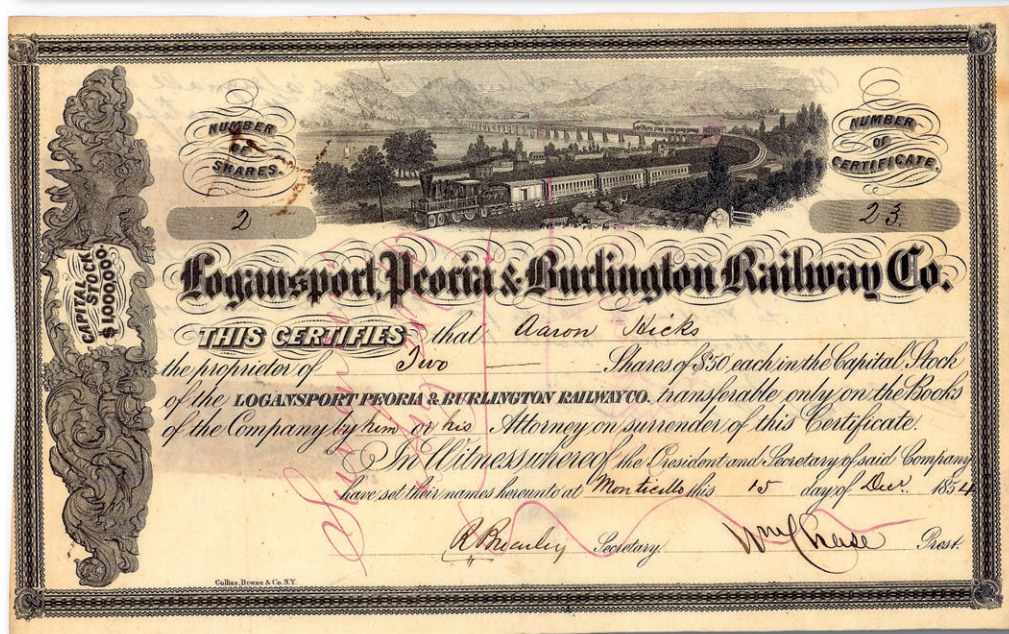 NUMBER
OF
SHARES.
2
NUMBER
OF
CERTIFICATE.
23.
CAPITAL
STOCK
$1,000,000.
Logansport, Peoria & Burlington Railway Co.
THIS CERTIFIES that Aaron Hicks
the proprietor of Two — Shares of $50 each in the Capital Stock
of the LOGANSPORT PEORIA & BURLINGTON RAILWAY CO. transferable only on the Books
of the Company by him or his Attorney on surrender of this Certificate.
In Witness whereof the President and Secretary of said Company
have set their names hereunto at Monticello this 15 day of Decr. 1854
Secretary.
Wm Chase Prest.
Collins, Bowne & Co. N.Y.